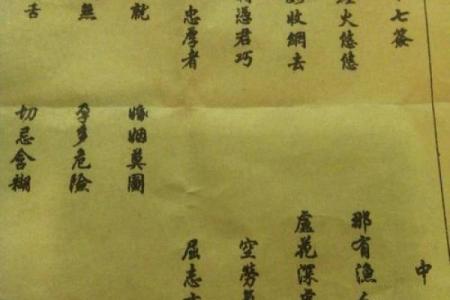 十七簽
火悠悠
收網去
憑君巧
忠厚者
就
無
舌
婚姻莫圖
孕多危險
切忌含糊
中
那有漁
花深
空勞
屈志